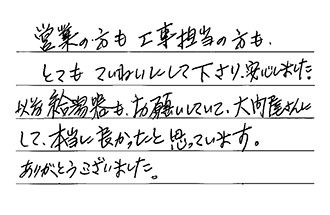 営業の方も 工事担当の方も、
とても ていねいにして下さり、安心しました。
以前 給湯器も、お願いしていて、大問屋さんに
して、本当に良かったと思っています。
ありがとうございました。